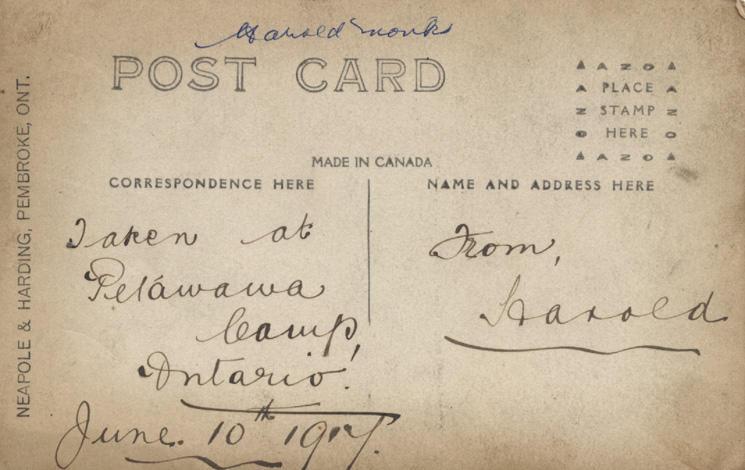 Harold Monks
POST CARD
AZO
PLACE
STAMP
HERE
AZO
MADE IN CANADA
CORRESPONDENCE HERE
NAME AND ADDRESS HERE
Taken at
Petawawa
Camp,
Ontario.
June. 10th 1917.
From,
Harold
NEAPOLE & HARDING, PEMBROKE, ONT.